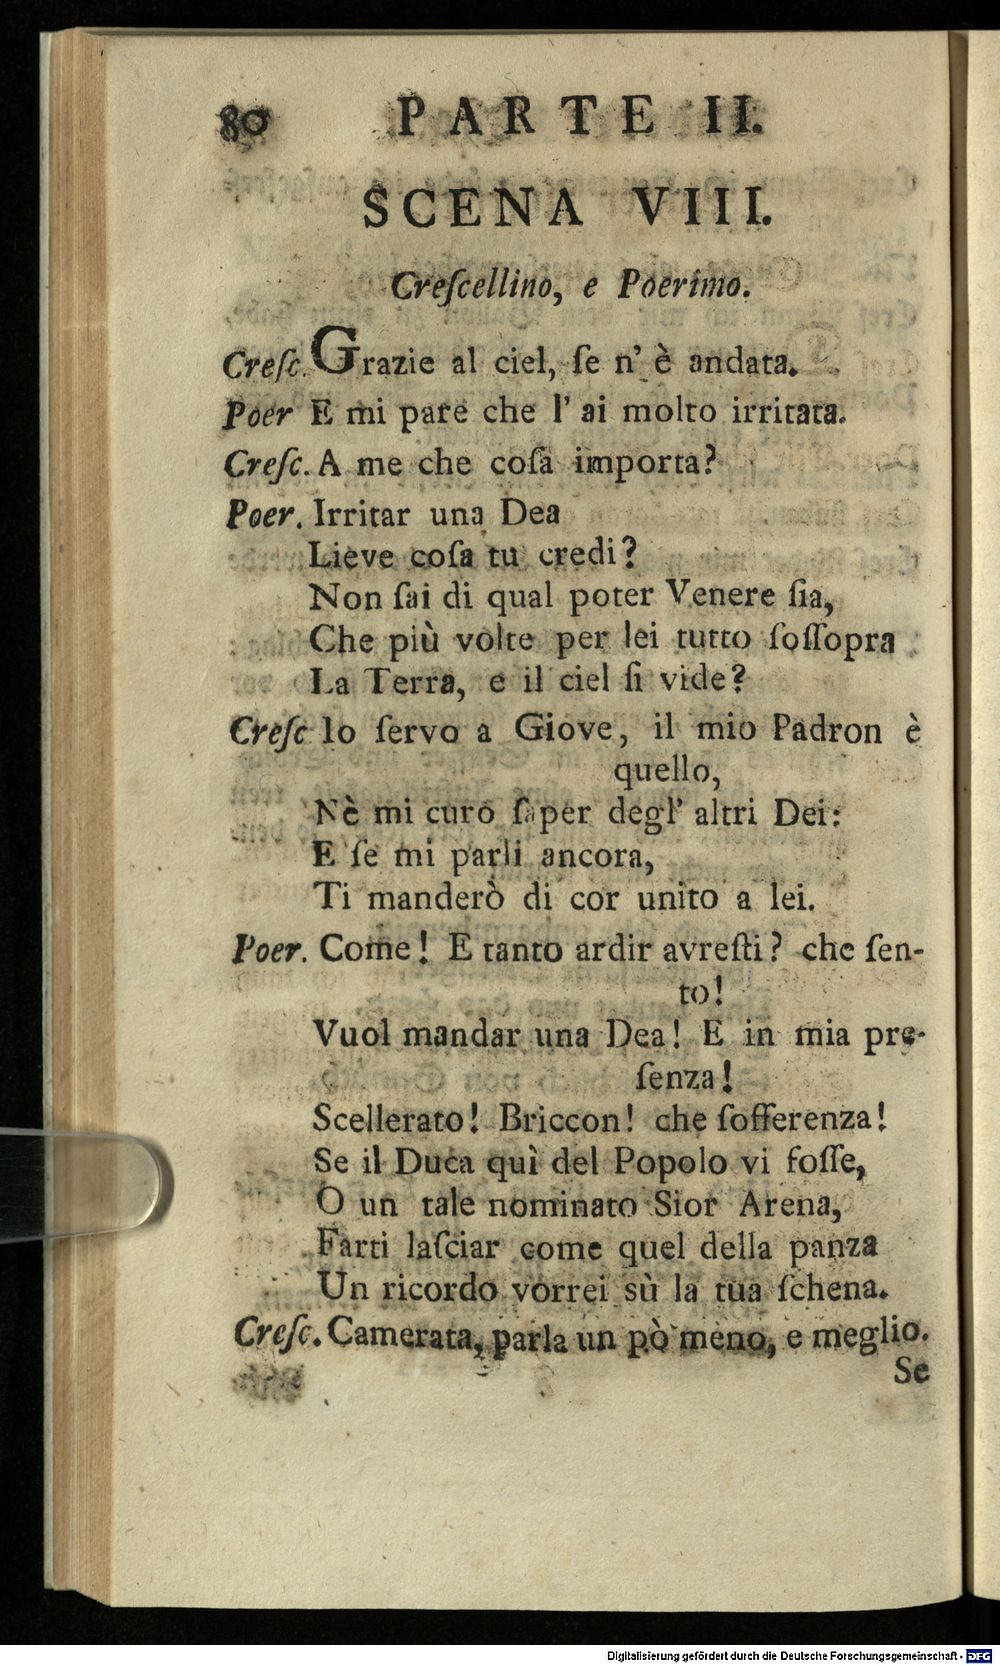 80 PARTE II.
SCENA VIII.
Creſcellino, e Poerimo.
Creſc. Grazie al ciel, ſe n' è andata.
Poer E mi pare che l' ai molto irritata.
Creſc. A me che coſa importa?
Poer. Irritar una Dea
Lieve coſa tu credi?
Non ſai di qual poter Venere ſia,
Che più volte per lei tutto ſoſſopra
La Terra, e il ciel ſi vide?
Creſc Io ſervo a Giove, il mio Padron è
quello,
Nè mi curo ſaper degl' altri Dei:
E ſe mi parli ancora,
Ti manderò di cor unito a lei.
Poer. Come! E tanto ardir avreſti? che ſen-
to!
Vuol mandar una Dea! E in mia pre-
ſenza!
Scellerato! Briccon! che ſofferenza!
Se il Duca quì del Popolo vi foſſe,
O un tale nominato Sior Arena,
Farti laſciar come quel della panza
Un ricordo vorrei sù la tua ſchena.
Creſc. Camerata, parla un pò meno, e meglio.
Se
Digitalisierung gefördert durch die Deutsche Forschungsgemeinschaft - DFG